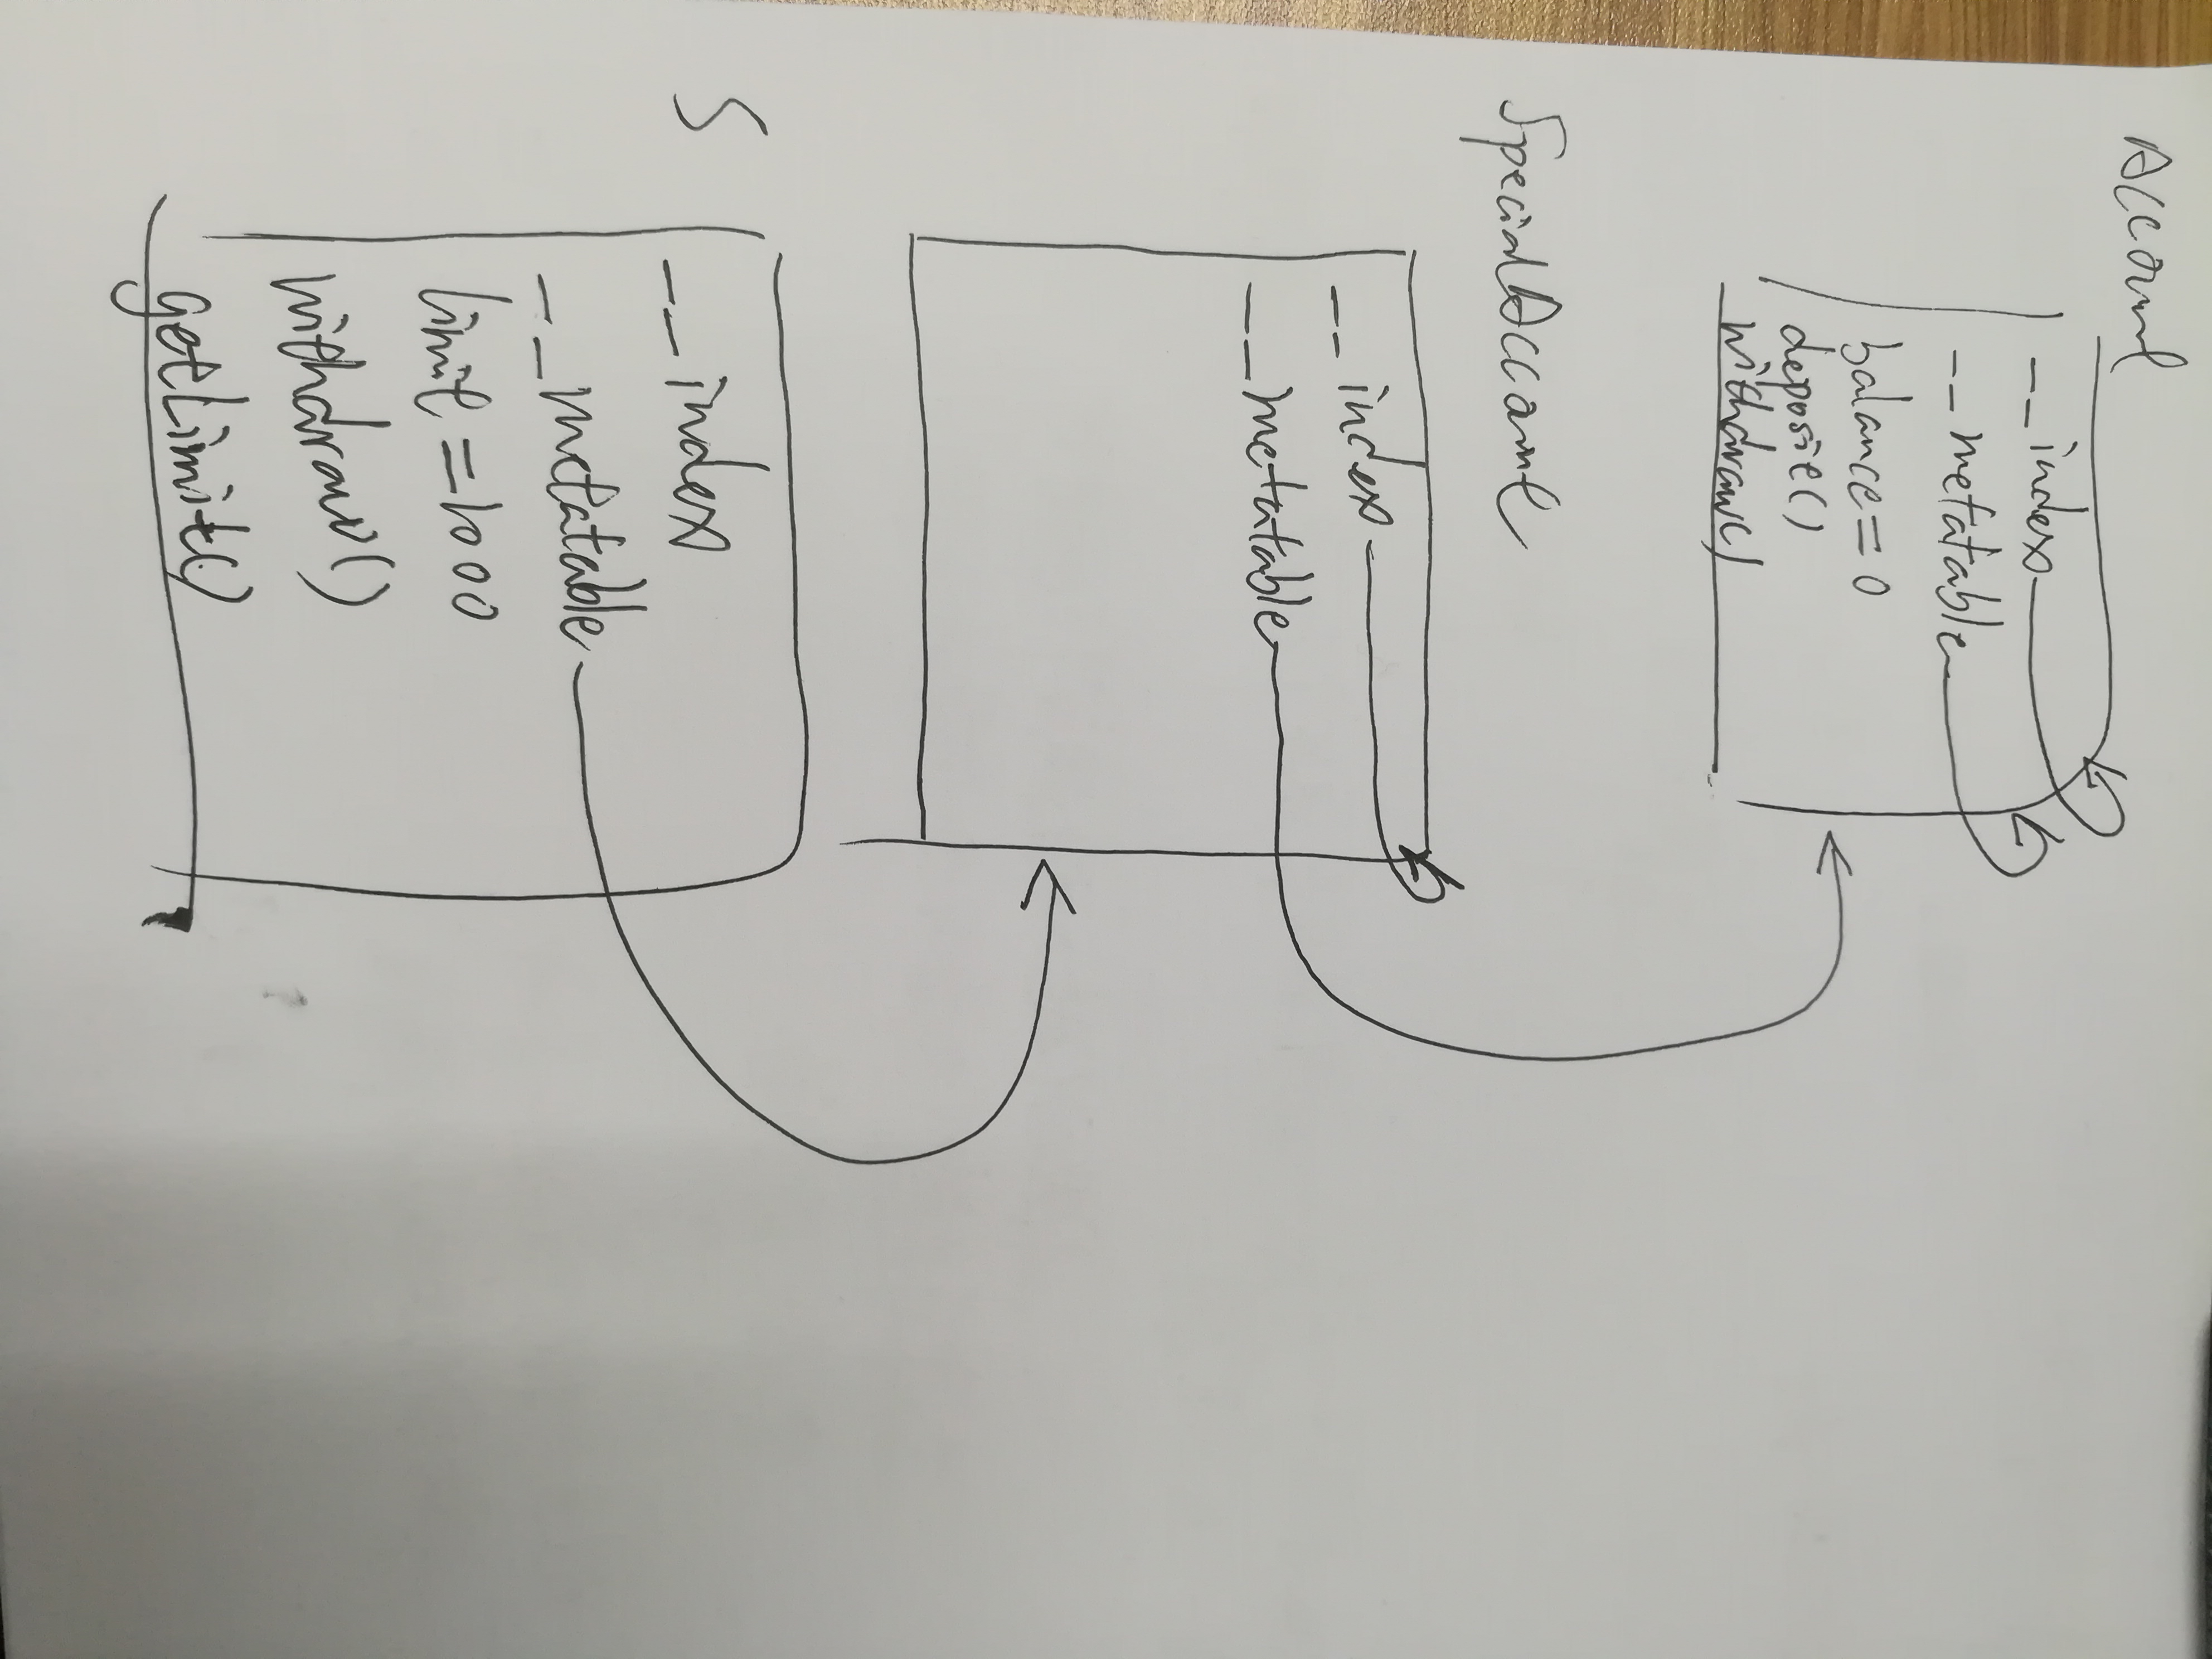 Account
__index
__metatable
balance = 0
deposit()
withdraw()
SpecialAccount
__index
__metatable
S
__index
__metatable
limit = 1000
withdraw()
getLimit()